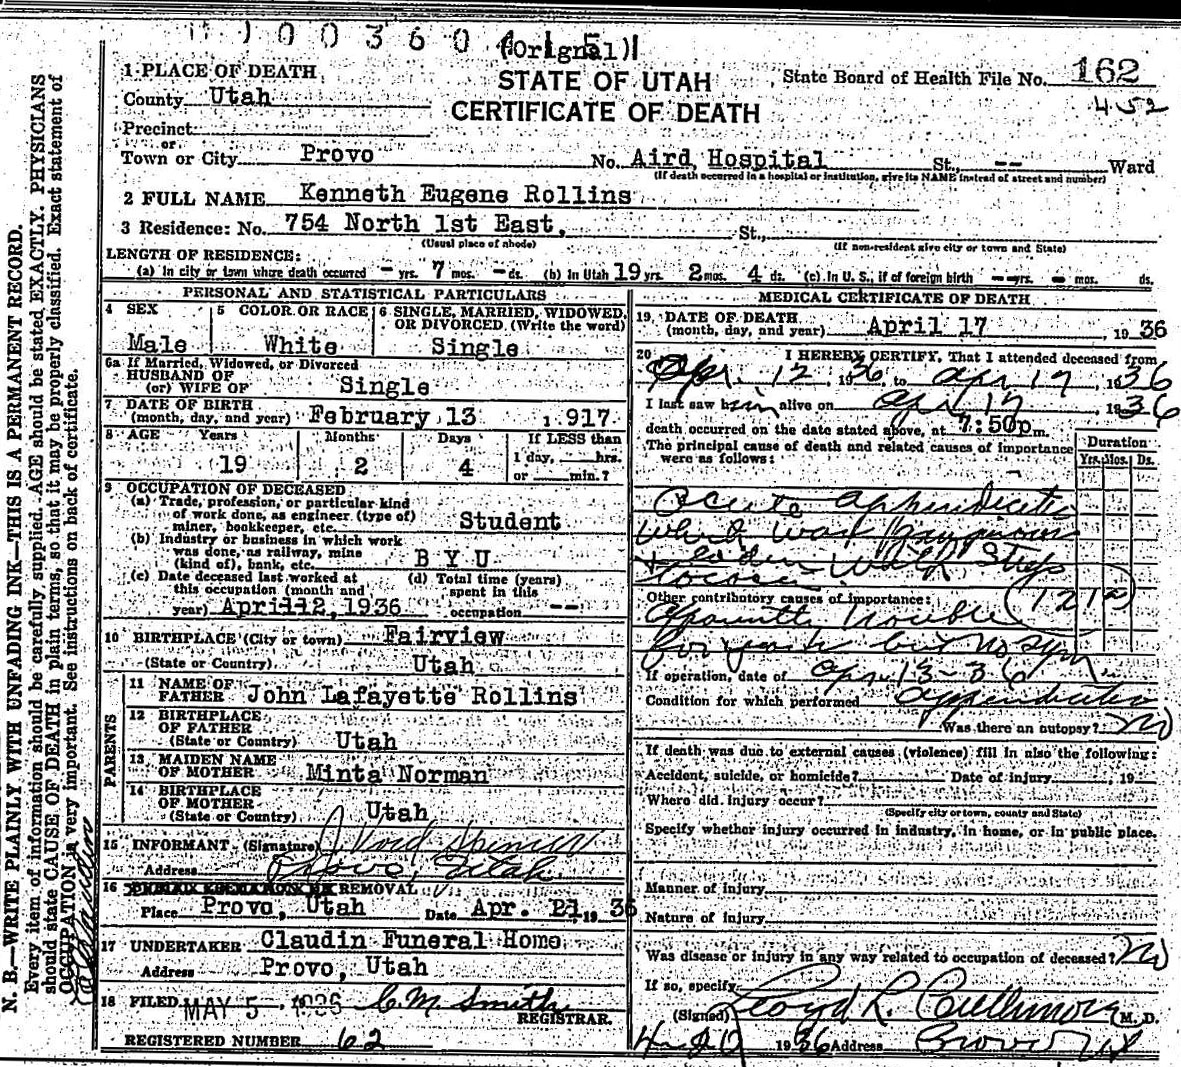 1003604151
(Orignal)
STATE OF UTAH
CERTIFICATE OF DEATH
State Board of Health File No. 162
452
1 PLACE OF DEATH
County Utah
Precinct
or
Town or City Provo No. Aird Hospital St., -- Ward
(If death occurred in a hospital or institution, give its NAME instead of street and number)
2 FULL NAME Kenneth Eugene Rollins
3 Residence: No. 754 North 1st East, St.,
(Usual place of abode) (If non-resident give city or town and State)
LENGTH OF RESIDENCE:
(a) In city or town where death occurred - yrs. 7 mos. - ds. (b) In Utah 19 yrs. 2 mos. 4 ds. (c) In U. S., if of foreign birth -- yrs. - mos. ds.
PERSONAL AND STATISTICAL PARTICULARS
4 SEX 5 COLOR OR RACE 6 SINGLE, MARRIED, WIDOWED, OR DIVORCED (Write the word)
Male White Single
6a If Married, Widowed, or Divorced
HUSBAND OF
(or) WIFE OF Single
7 DATE OF BIRTH
(month, day, and year) February 13 , 1917
8 AGE Years Months Days If LESS than
1 day, hrs.
or min.?
19 2 4
9 OCCUPATION OF DECEASED
(a) Trade, profession, or particular kind
of work done, as engineer (type of)
miner, bookkeeper, etc. Student
(b) Industry or business in which work
was done, as railway, mine
(kind of), bank, etc. B Y U
(c) Date deceased last worked at
this occupation (month and
year) April 12, 1936
(d) Total time (years)
spent in this
occupation --
10 BIRTHPLACE (City or town) Fairview
(State or Country) Utah
PARENTS
11 NAME OF
FATHER John Lafayette Rollins
12 BIRTHPLACE
OF FATHER
(State or Country) Utah
13 MAIDEN NAME
OF MOTHER Minta Norman
14 BIRTHPLACE
OF MOTHER
(State or Country) Utah
15 INFORMANT (Signature)
Address Provo, Utah
16 REMOVAL
Place Provo, Utah Date Apr. 21 19 36
17 UNDERTAKER Claudin Funeral Home
Address Provo, Utah
18 FILED MAY 5 - 1936 C. M. Smith
REGISTRAR.
REGISTERED NUMBER 62
MEDICAL CERTIFICATE OF DEATH
19 DATE OF DEATH
(month, day, and year) April 17 , 1936
20 I HEREBY CERTIFY, That I attended deceased from
Apr. 12, 1936 to Apr 17, 1936
I last saw him alive on Apr 17, 1936
death occurred on the date stated above, at 7:50p m.
The principal cause of death and related causes of importance
were as follows:
Duration
Yrs. Mos. Ds.
Acute appendicitis
which was gangrenous
Other contributory causes of importance: (121a)
trouble
but no
If operation, date of Apr 13-36
Condition for which performed appendicitis
Was there an autopsy? No
If death was due to external causes (violence) fill in also the following:
Accident, suicide, or homicide? Date of injury , 19
Where did injury occur?
(Specify city or town, county and State)
Specify whether injury occurred in industry, in home, or in public place.
Manner of injury
Nature of injury
Was disease or injury in any way related to occupation of deceased? No
If so, specify
(Signed) Lloyd L. Cullimore M. D.
4-20 1936 Address Provo Ut
N. B.—WRITE PLAINLY WITH UNFADING INK—THIS IS A PERMANENT RECORD.
Every item of information should be carefully supplied. AGE should be stated EXACTLY. PHYSICIANS
should state CAUSE OF DEATH in plain terms, so that it may be properly classified. Exact statement of
OCCUPATION is very important. See instructions on back of certificate.